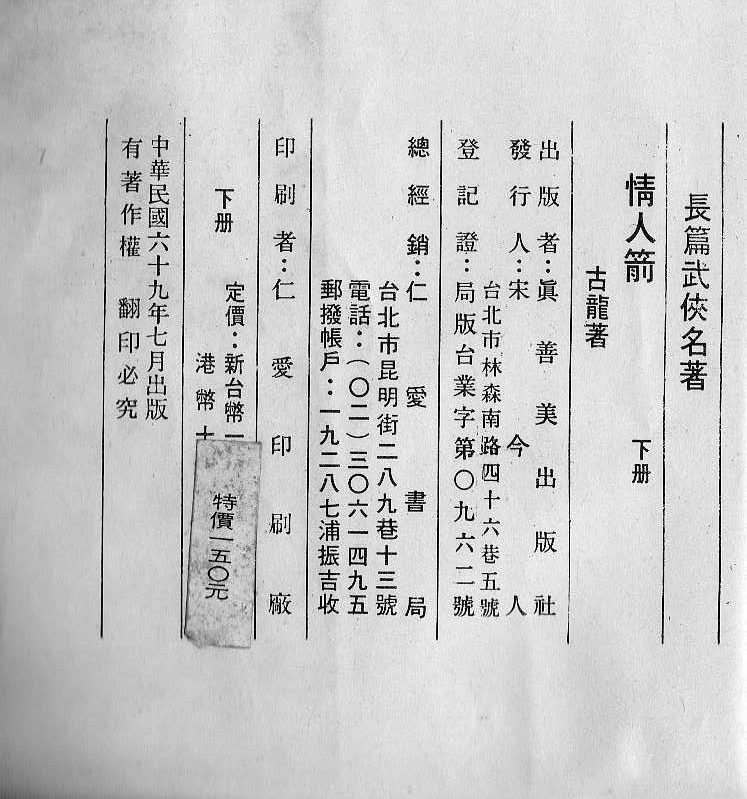 長篇武俠名著
情人箭 下册
古龍著
出版者：眞善美出版社
發行人：宋今人
台北市林森南路四十六巷五號
登記證：局版台業字第〇九六二號
總經銷：仁愛書局
台北市昆明街二八九巷十三號
電話：（〇二）三〇六一四九五
郵撥帳戶：一九二八七浦振吉收
印刷者：仁愛印刷廠
下册
定價：新台幣一
港幣十
特價一五〇元
中華民國六十九年七月出版
有著作權 翻印必究